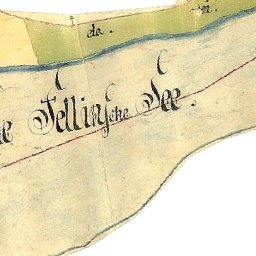 de.
Fellinsche See.